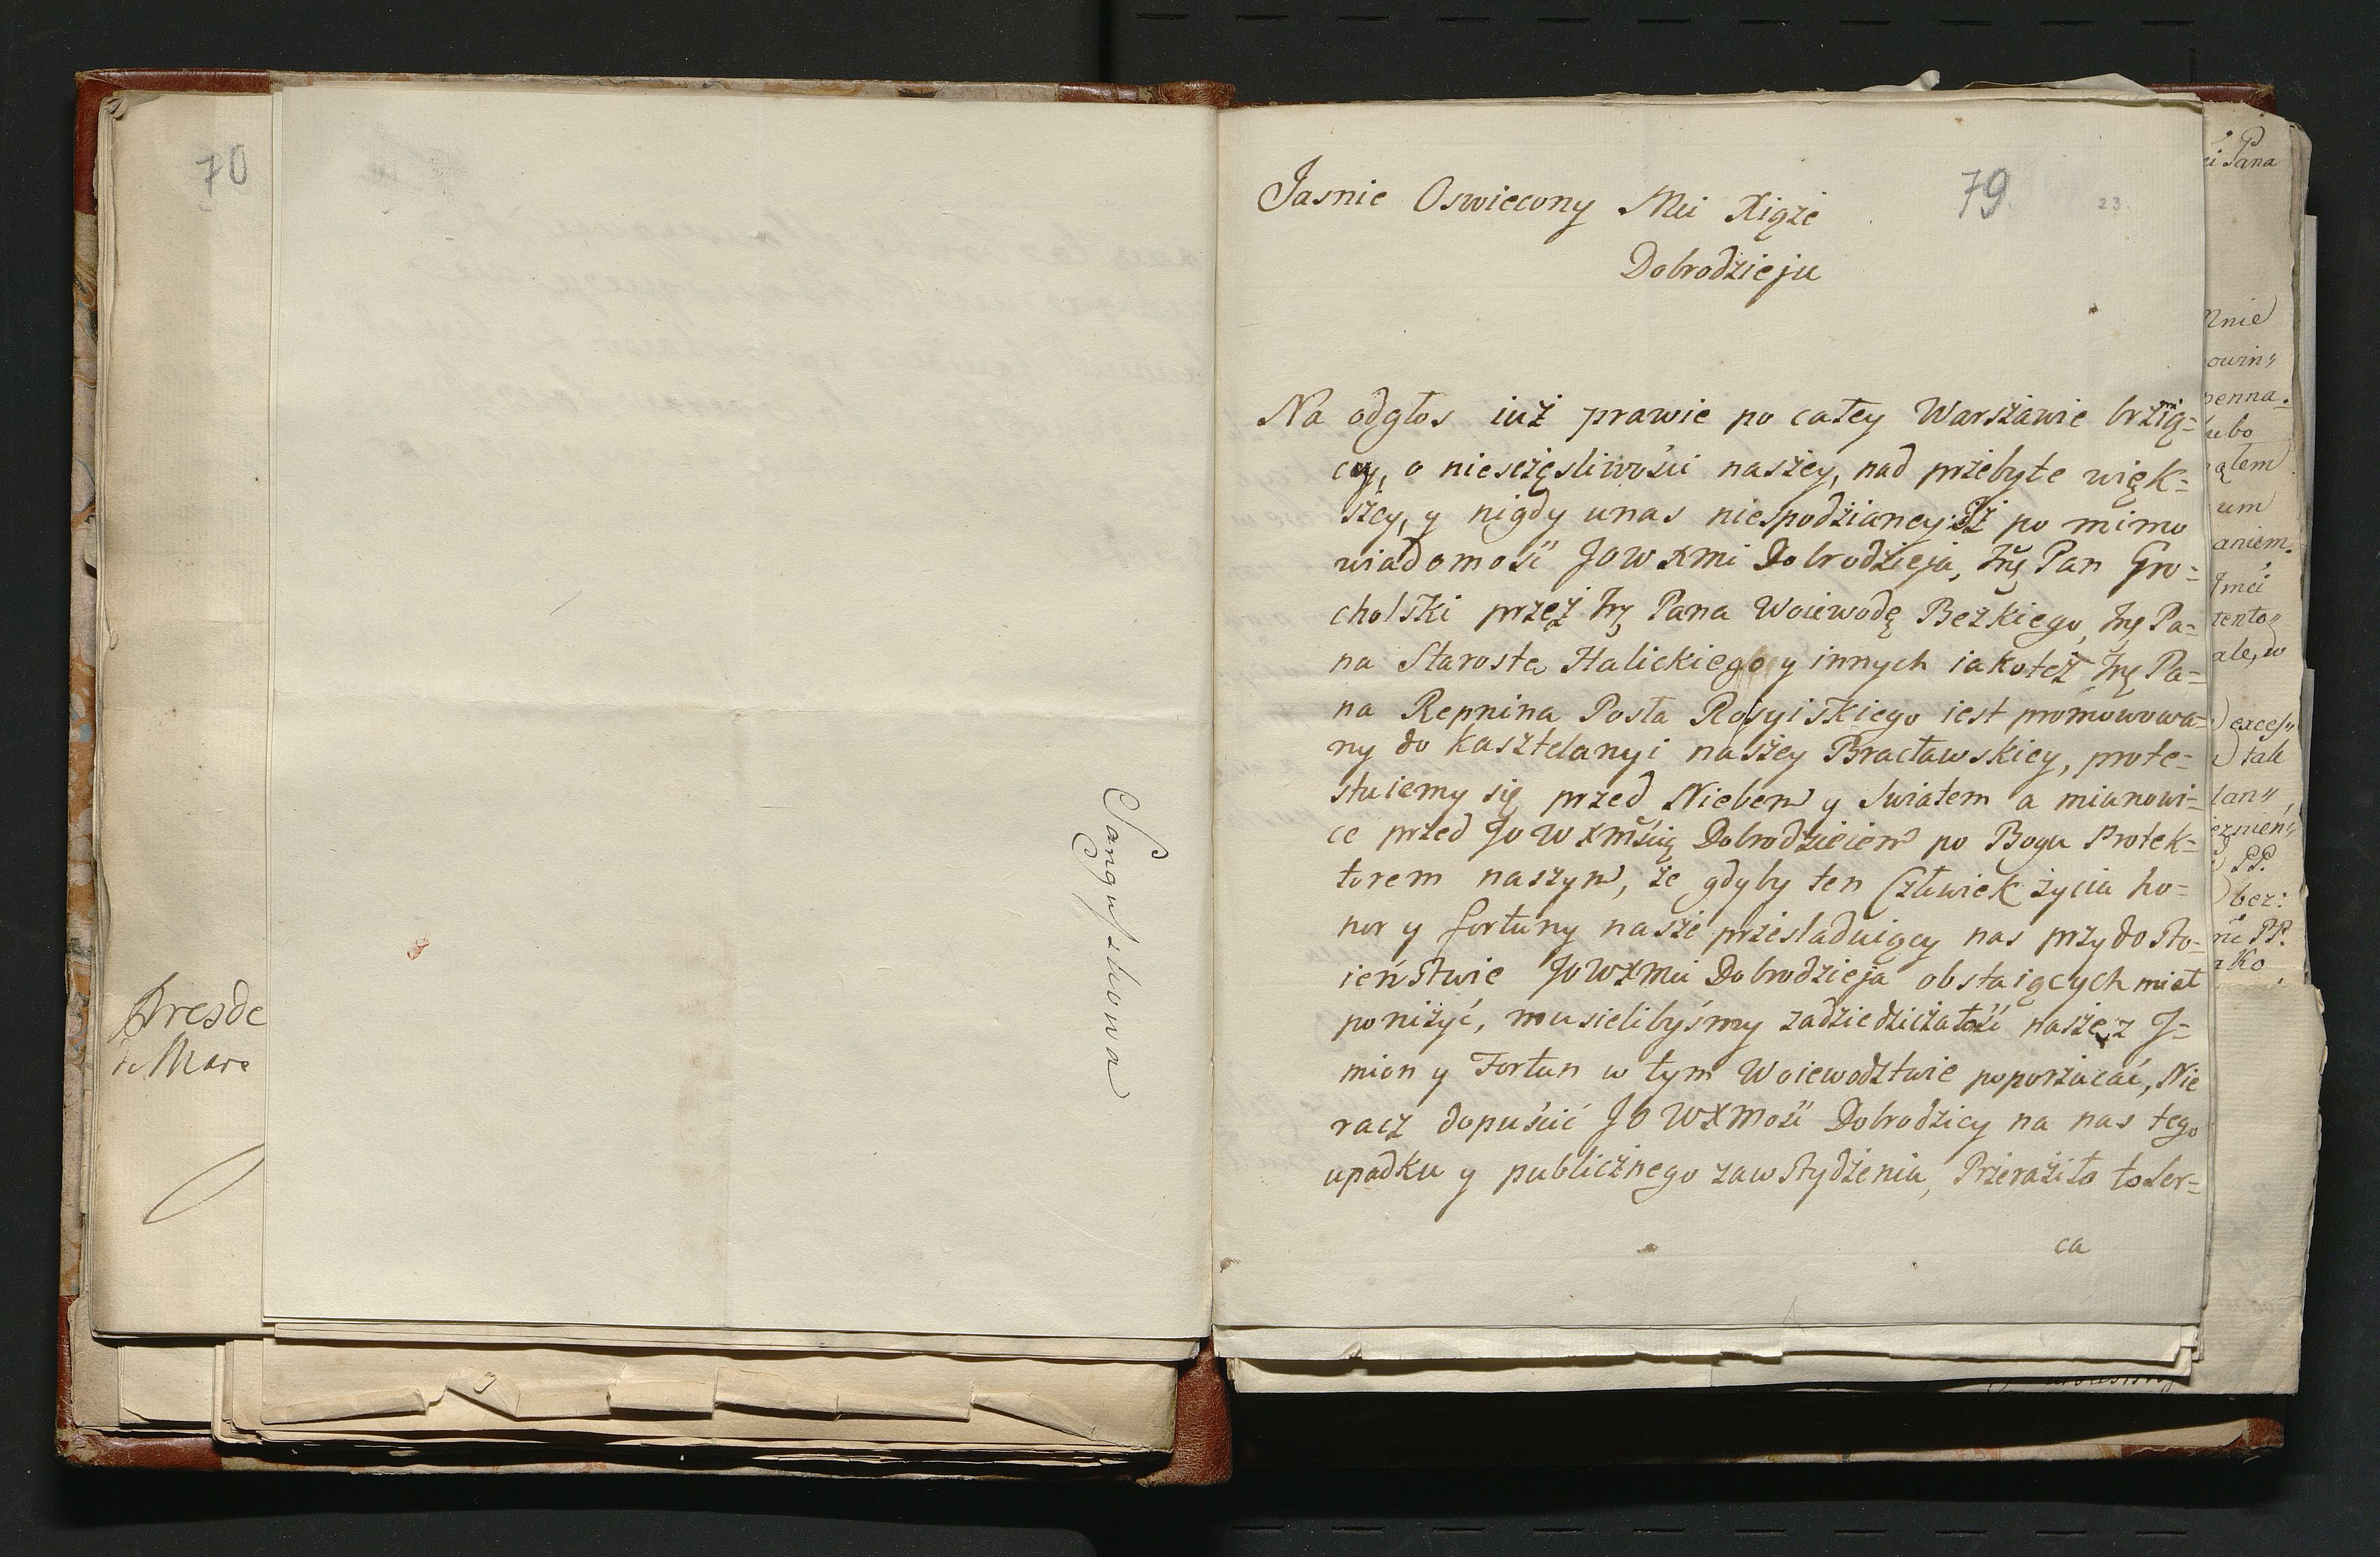 70
Dresde
Mars
Sanguszkowa
79
23.
Jasnie Oswiecony Mci Xiąże
Dobrodzieju
Na odgłos iuż prawie po całey Warszawie brzmią=
cy, o niesczęsliwości naszey, nad przebyte więk=
szey, y nigdy unas niespodzianey: Iż po mimo
wiadomość JOWXMci Dobrodzieja, Pan Gro=
cholski przez Pana Woiewodę Bełzkiego, Pa=
na Starostę Halickiego y innych iakoteż Pa=
na Repnina Posła Rossyiskiego iest promowowa=
ny do Kasztelanyi naszey Bracławskiey, prote=
stuiemy się przed Niebem y Swiatem a mianowi=
ce przed JO WXMścią Dobrodzieiem po Bogu Protek=
torem naszym, że gdyby ten Człowiek życia ho=
nor y fortuny nasze przesladuiący nas przy dosto=
ieństwie JOWXMci Dobrodzieja obstaiących miał
poniżyć, musielibyśmy zadziedziczałość nasze z J=
mion y Fortun w tym Woiewodztwie poporzucać, Nie
racz dopuścić JO WXMość Dobrodziey na nas tego
upadku y publicznego zawstydzenia, Przeraziło to ser=
ca
i Pana
Mnie
powin"
penna.
lubo
ątem
um
aniem.
Jmci
tento"
ale, w
exces"
tak
lan",
PP.
bez:
PP.
ako